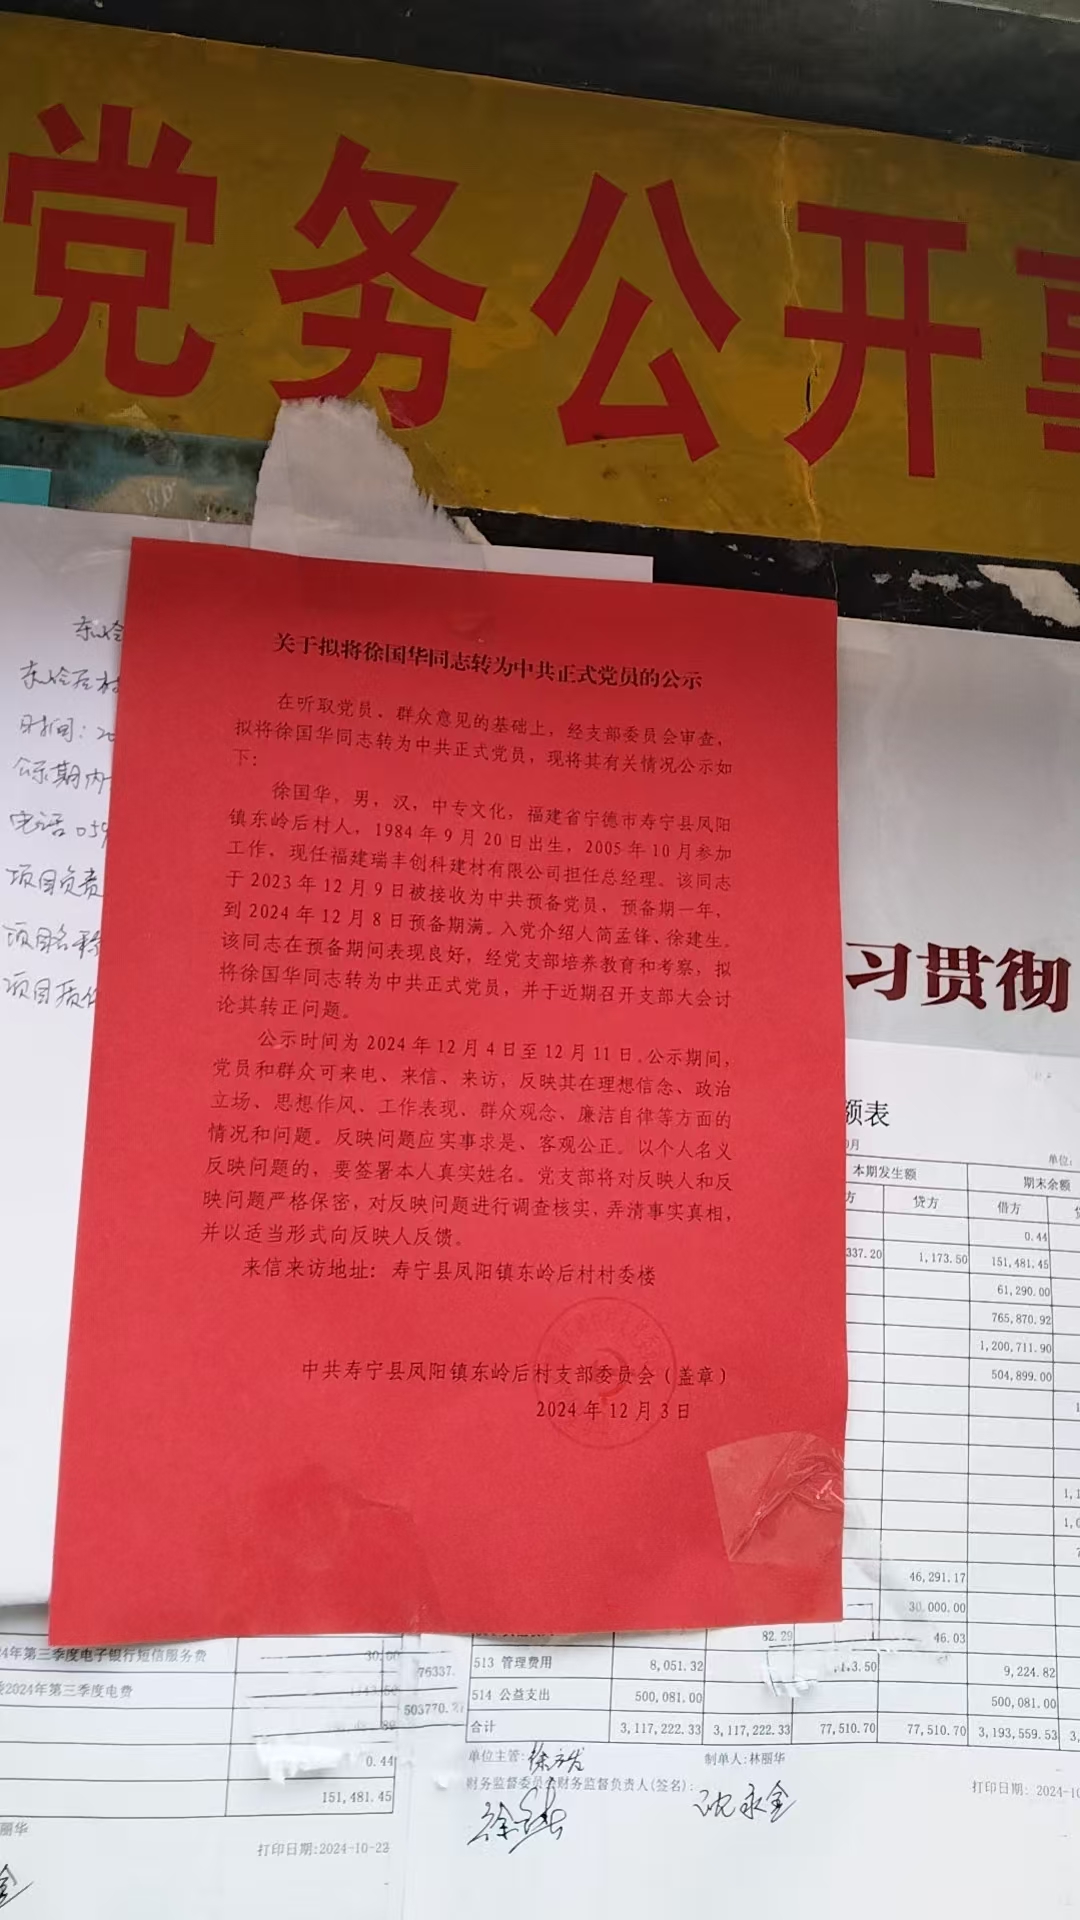 党务公开
东岭
东岭后村
时间:
公示期内
电话059
项目负责
项目名称
项目
关于拟将徐国华同志转为中共正式党员的公示
在听取党员、群众意见的基础上,经支部委员会审查,
拟将徐国华同志转为中共正式党员,现将其有关情况公示如
下:
徐国华,男,汉,中专文化,福建省宁德市寿宁县凤阳
镇东岭后村人,1984年9月20日出生,2005年10月参加
工作,现任福建瑞丰创科建材有限公司担任总经理。该同志
于2023年12月9日被接收为中共预备党员,预备期一年,
到2024年12月8日预备期满。入党介绍人简孟锋、徐建生。
该同志在预备期间表现良好,经党支部培养教育和考察,拟
将徐国华同志转为中共正式党员,并于近期召开支部大会讨
论其转正问题。
公示时间为2024年12月4日至12月11日。公示期间,
党员和群众可来电、来信、来访,反映其在理想信念、政治
立场、思想作风、工作表现、群众观念、廉洁自律等方面的
情况和问题。反映问题应实事求是、客观公正。以个人名义
反映问题的,要签署本人真实姓名。党支部将对反映人和反
映问题严格保密,对反映问题进行调查核实,弄清事实真相,
并以适当形式向反映人反馈。
来信来访地址:寿宁县凤阳镇东岭后村村委楼
中共寿宁县凤阳镇东岭后村支部委员会(盖章)
2024年12月3日
习贯彻
额表
月
单位:
本期发生额 期末余额
方 贷方 借方
0.44
337.20 1,173.50 151,481.45
61,290.00
765,870.92
1,200,711.90
504,899.00
46,291.17
30,000.00
82.29 46.03
513 管理费用 8,051.32 9,224.82
514 公益支出 500,081.00 500,081.00
合计 3,117,222.33 3,117,222.33 77,510.70 77,510.70 3,193,559.53
单位主管: 制单人:林丽华
财务监督委员会财务监督负责人(签名):
打印日期: 2024-10
4年第三季度电子银行短信服务费
2024年第三季度电费
76337.
503770.2
0.44
151,481.45
丽华
打印日期:2024-10-22